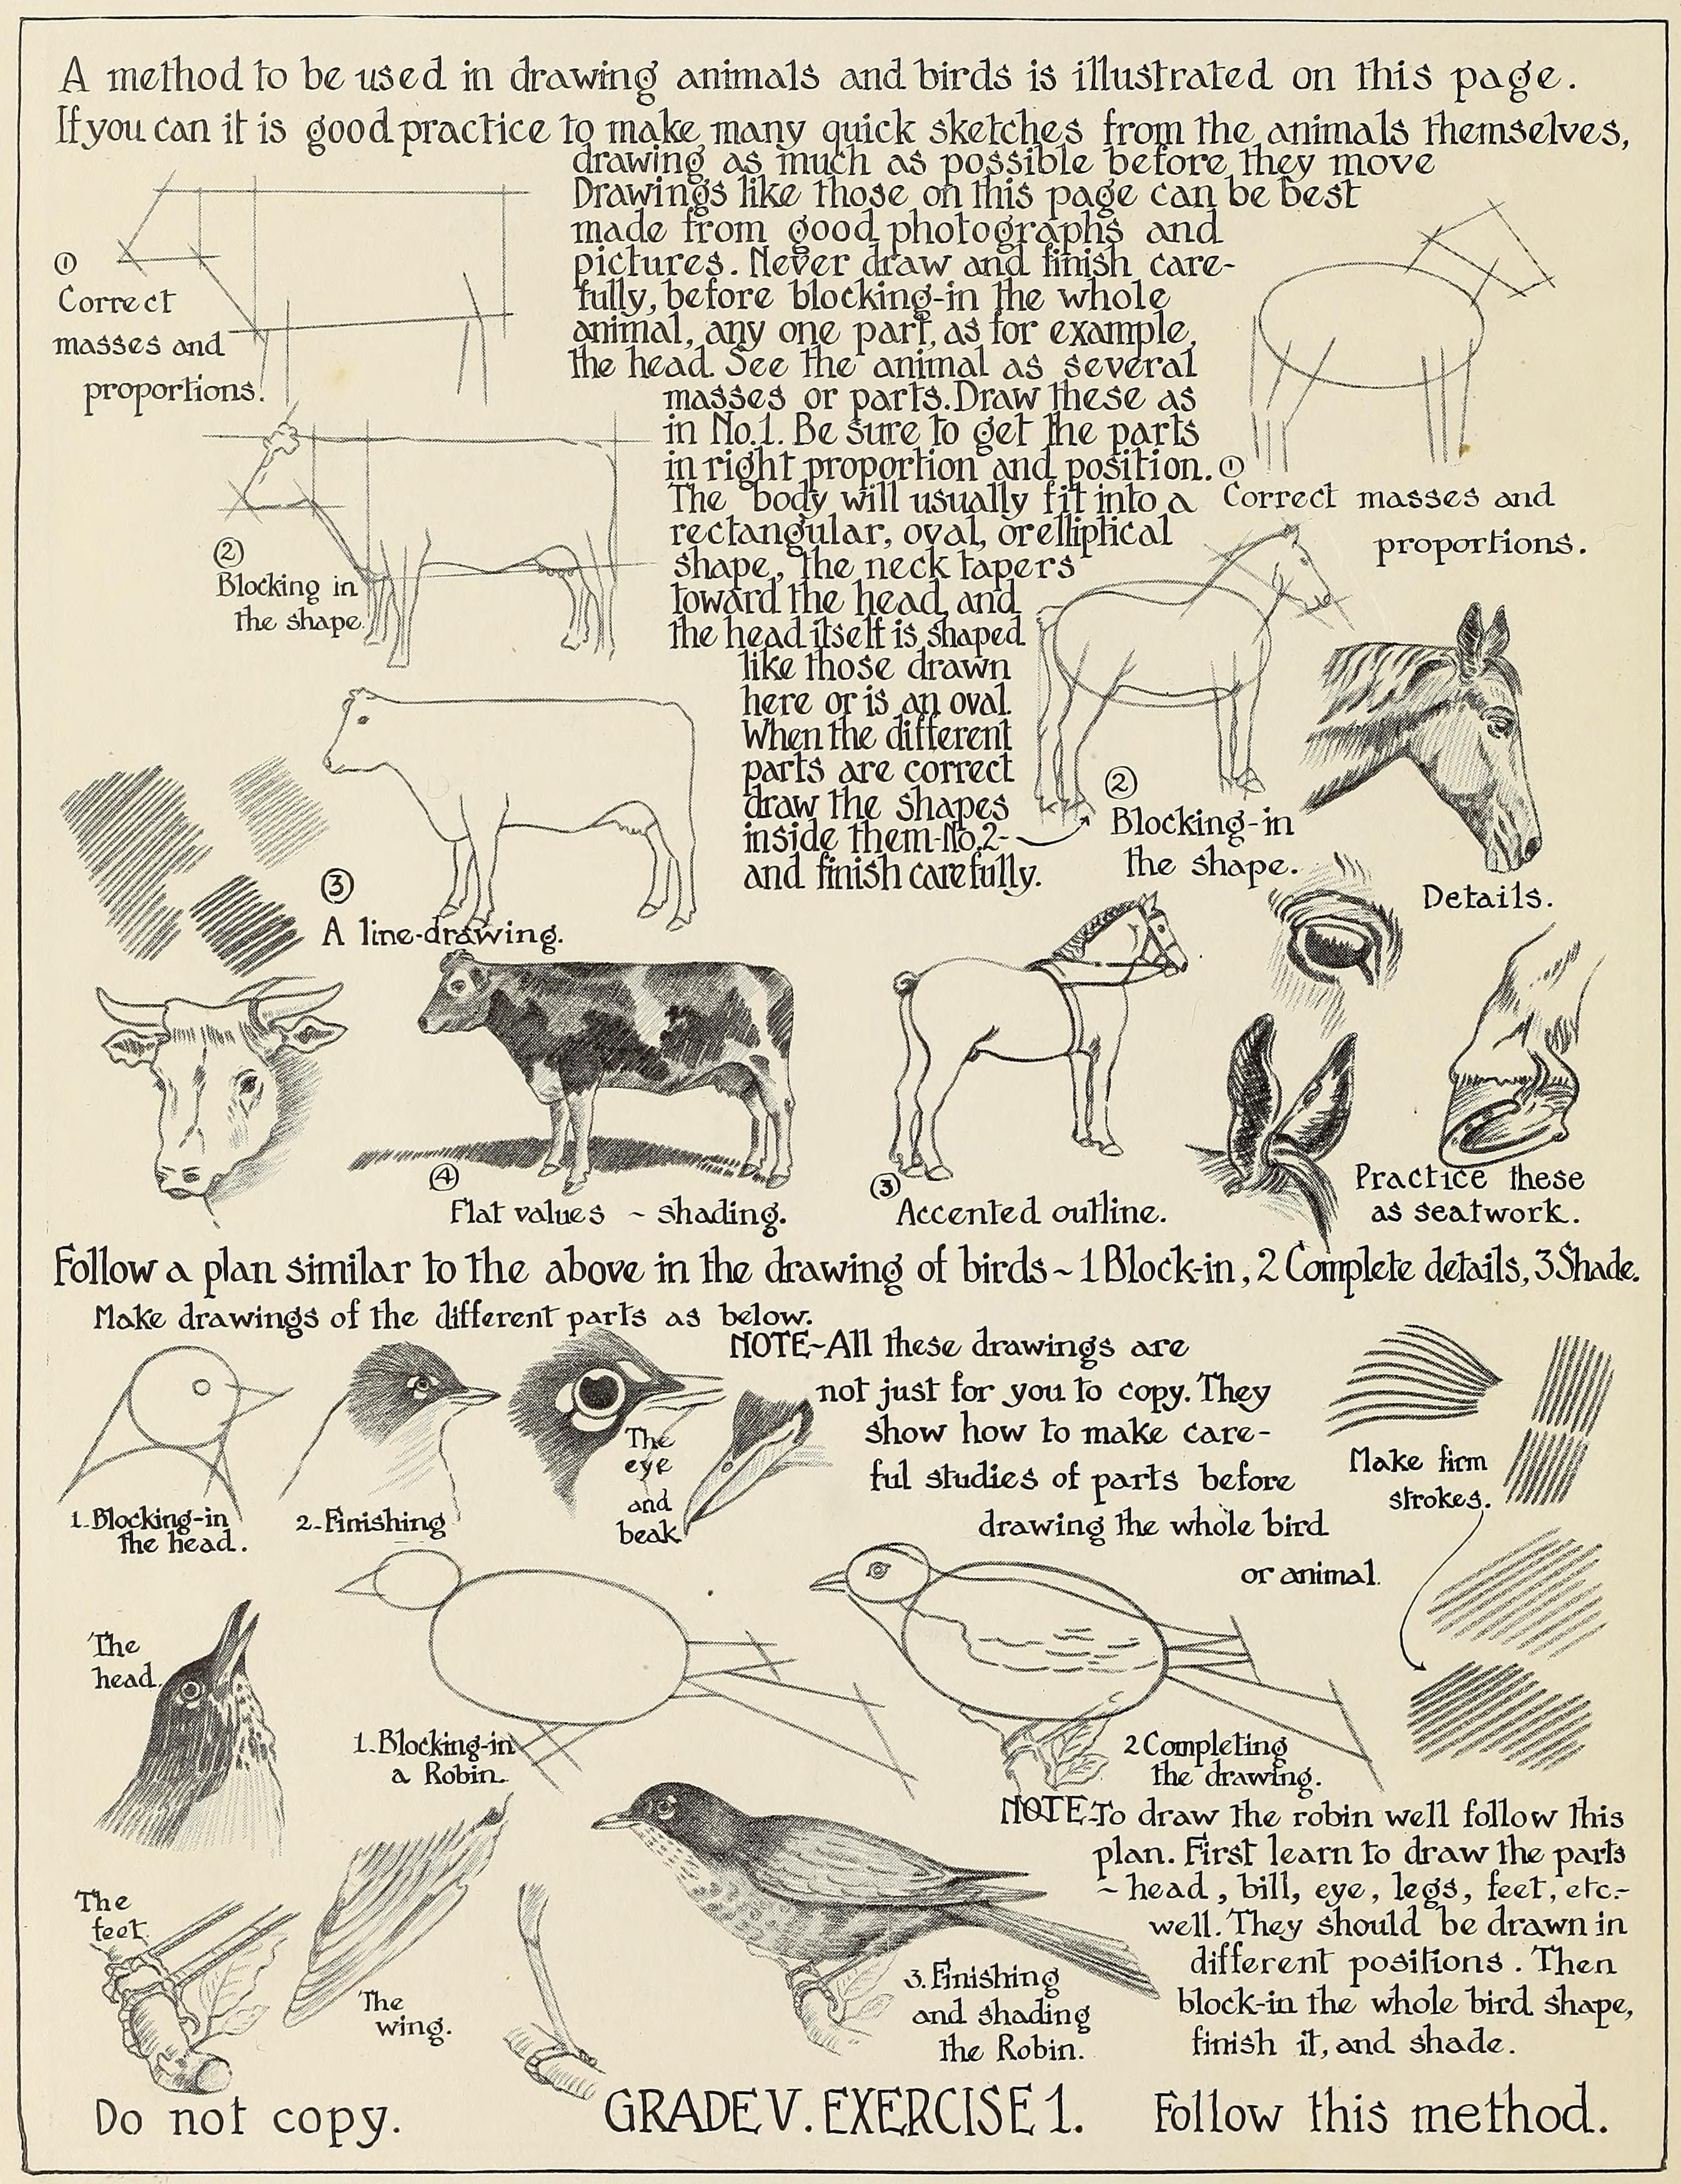 A method to be used in drawing animals and birds is illustrated on this page.
If you can it is good practice to make many quick sketches from the animals themselves,
drawing as much as possible before they move
Drawings like those on this page can be best
made from good photographs and
pictures. Never draw and finish care-
fully, before blocking-in the whole
animal, any one part, as for example,
the head. See the animal as several
masses or parts. Draw these as
in No.1. Be sure to get the parts
in right proportion and position.
The body will usually fit into a
rectangular, oval, or elliptical
shape, the neck tapers
toward the head, and
the head itself is shaped
like those drawn
here or is an oval.
When the different
parts are correct
draw the shapes
inside them-No.2-
and finish carefully.
①
Correct
masses and
proportions.
②
Blocking in
the shape.
③
A line-drawing.
④
Flat values ~ shading.
①
Correct masses and
proportions.
②
Blocking-in
the shape.
Details.
③
Accented outline.
Practice these
as seatwork.
Follow a plan similar to the above in the drawing of birds ~ 1 Block-in, 2 Complete details, 3 Shade.
Make drawings of the different parts as below.
NOTE~All these drawings are
not just for you to copy. They
show how to make care-
ful studies of parts before
drawing the whole bird
or animal.
1.Blocking-in
the head.
2-Finishing
The
eye
and
beak
Make firm
strokes.
The
head.
1.Blocking-in
a Robin.
2 Completing
the drawing.
NOTE-To draw the robin well follow this
plan. First learn to draw the parts
~ head, bill, eye, legs, feet, etc.-
well. They should be drawn in
different positions. Then
block-in the whole bird shape,
finish it, and shade.
The
feet.
The
wing.
3. Finishing
and shading
the Robin.
Do not copy.
GRADE V. EXERCISE 1.
Follow this method.